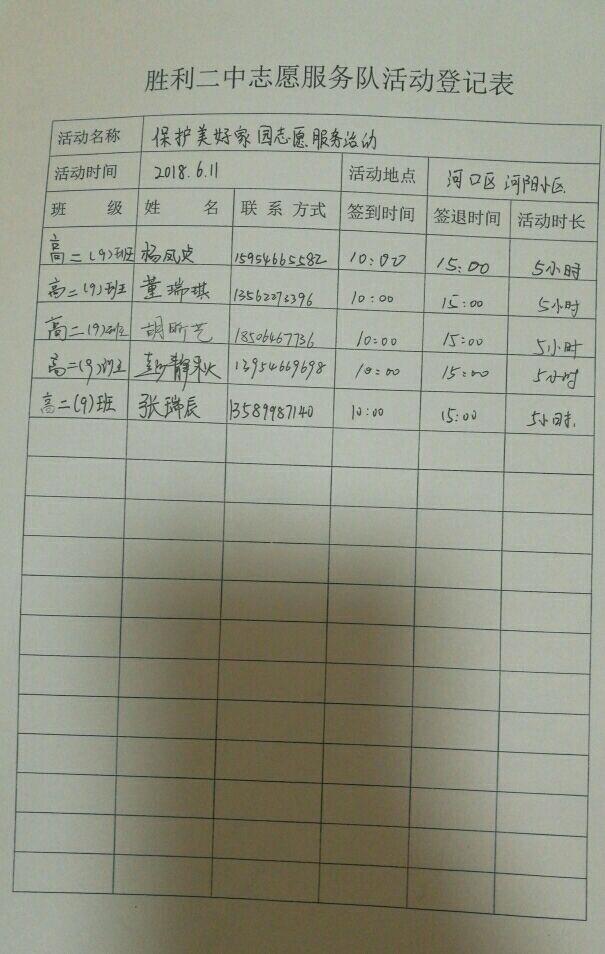 胜利二中志愿服务队活动登记表
活动名称 保护美好家园志愿服务活动
活动时间 2018.6.11 活动地点 河口区 河阳小区
班 级 姓 名 联 系 方式 签到时间 签退时间 活动时长
高二(9)班 杨凤贞 15954665582 10:00 15:00 5小时
高二(9)班 董瑞琪 13562273396 10:00 15:00 5小时
高二(9)班 胡昕艺 18506467736 10:00 15:00 5小时
高二(9)班 彭静 13954669698 10:00 15:00 5小时
高二(9)班 张瑞辰 13589987140 10:00 15:00 5小时